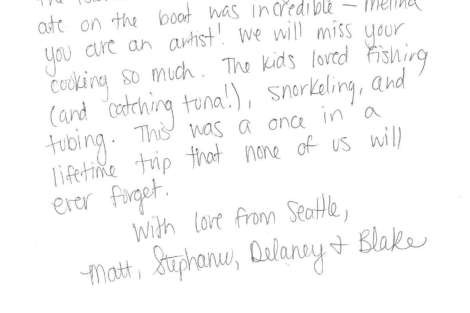 ate on the boat was incredible – Melina
you are an artist! We will miss your
cooking so much. The kids loved fishing
(and catching tuna!), snorkeling, and
tubing. This was a once in a
lifetime trip that none of us will
ever forget.
With love from Seattle,
Matt, Stephanie, Delaney + Blake